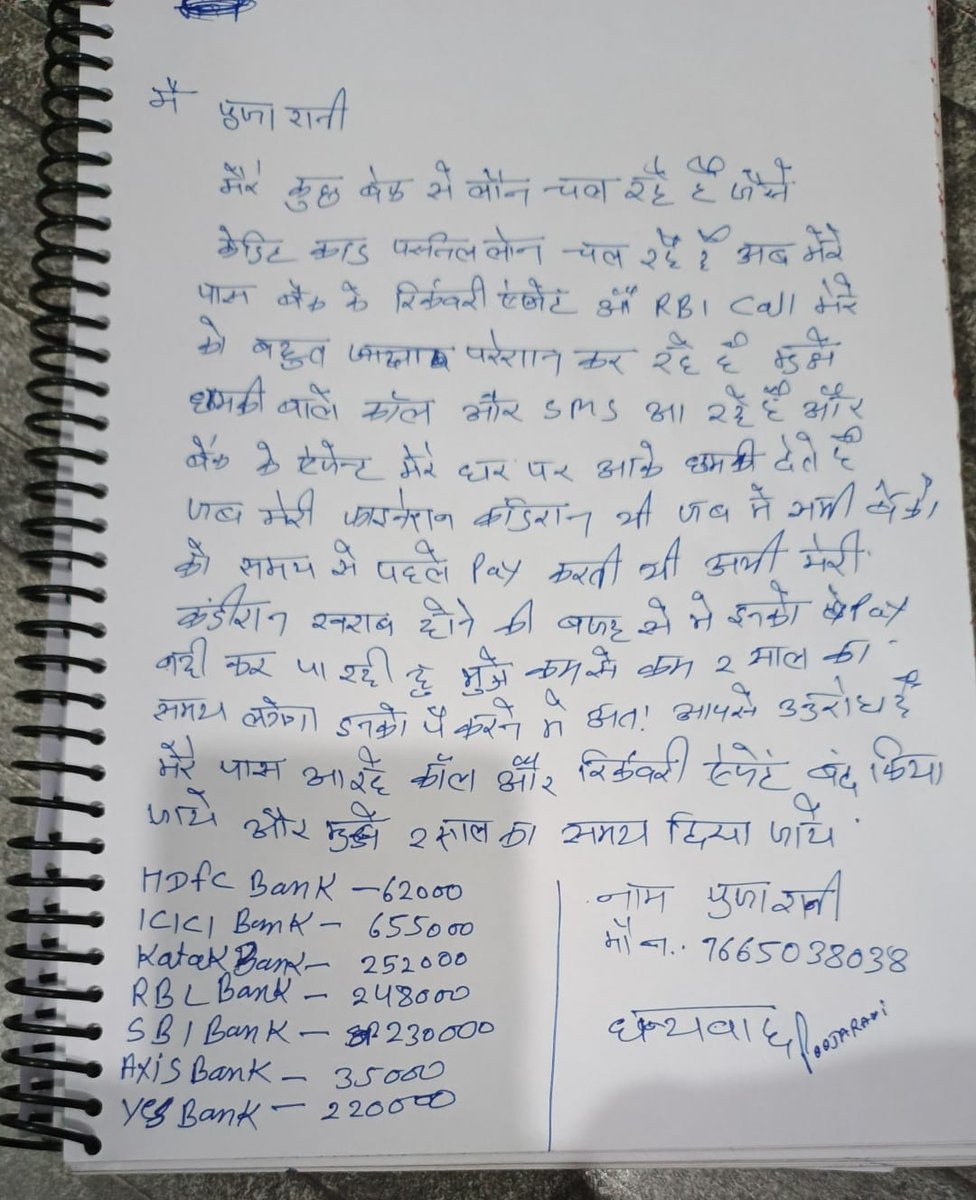 मै पुजा रानी
मेरे कुछ बेंक से लौन चल रहे है जैसे
केडिट काड पर्सनल लोन चल रहे है अब मेरे
पास बैंक के रिर्कवरी ऐजेंट औ RBI Call मेरे
को बहुत ज्यादा परेशान कर रहे है मुझे
धमकी वाले कॉल और SMS आ रहे है और
बैंक के ऐजेन्ट मेरे घर पर आके धमकी देते है
जब मेरी कंडिशन थी जब मै सभी बेंको
को समय से पहले Pay करती थी अभी मेरी
कंडीशन खराब होने की वजह से मे इनको Pay
नही कर पा रही हु मुझे कम से कम 2 साल का
समय लगेगा इनको पै करने मे अत! आपसे अनुरोध है
मेरे पास आ रहे कॉल और रिर्कवरी ऐजेंट बंद किया
जाये और मुझे 2 साल का समय दिया जाये
HDFC Bank - 62000
ICICI Bank - 655000
Katak Bank - 252000
RBL Bank - 248000
SBI Bank - 230000
AXIS Bank - 35000
Yes Bank - 220000
नाम पुजा रानी
मौ न.: 7665038038
धन्यवाद POOJARANI